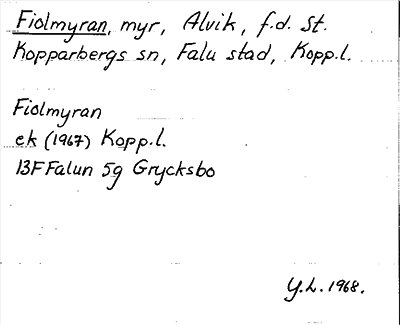 Fiolmyran, myr, Alvik, f.d. St.
Kopparbergs sn, Falu stad, Kopp.l.
Fiolmyran
ek (1967) Kopp.l.
13F Falun 5g Grycksbo
Y.L. 1968.